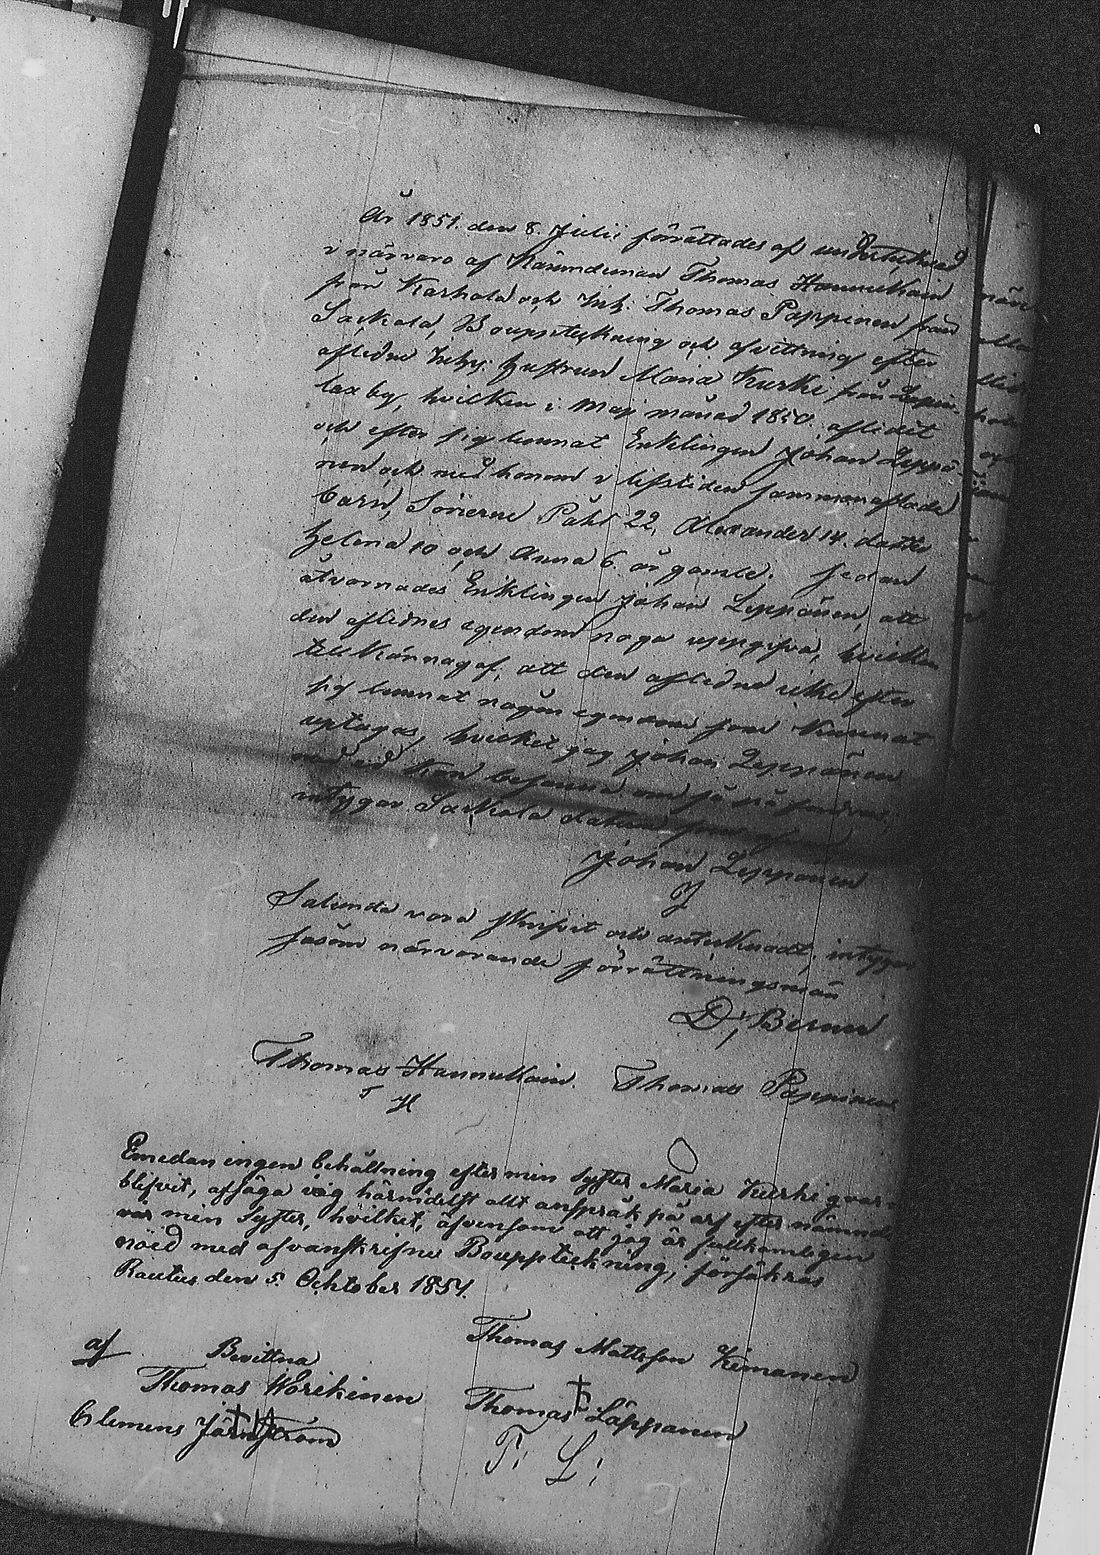 År 1851. den 8. Julii förrättades af undertecknad
i närvaro af Nämndeman Thomas Hannukain
från Karhola och Inh: Thomas Pappinen från
Sackola, Bouppteckning och afvittring efter
aflidne Inhs: hustrun Maria Kurki från Lapin-
lax by, hvilken i Maj månad 1850. aflidit
och efter sig lemnat Enklingen Johan Leppä-
nen och med honom i lifstiden sammanaflade
barn, Sönerne Påhl 22, Alexander 14. dottr:
Helena 10 och Anna 6. år gamle. Sedan
åtvarnades Enklingen Johan Leppänen, att
den aflidnes egendom noga uppgifva, hvilken
tillkännagaf, att den aflidne icke efter
sig lemnat någon egendom som kunnat
uptagas, hvilket jag Johan Leppänen
med ed kan besanna om så påfordras,
intygar Sackola
Johan Leppänen
Salunda vara skrifvit och antecknadt, intygar
såsom närvarande förrättningsmän
D; Bernn
Thomas Hannukain. Thomas Pappinen
T H
Emedan ingen behållning efter min Syster Maria Kurki qvar-
blifvit, afsäga jag härmedelst allt anspråk på arf efter nämnde
vår min Syster, hvilket, äfvensom att jag är fullkomligen
nöjd med ofvanskrifne Bouppteckning, försäkras
Rautus den 5. October 1851.
Thomas Mattsson Kimanen
af Bevittna
Thomas Worikinen Thomas Läppanen
Clemens Järnström T: L: